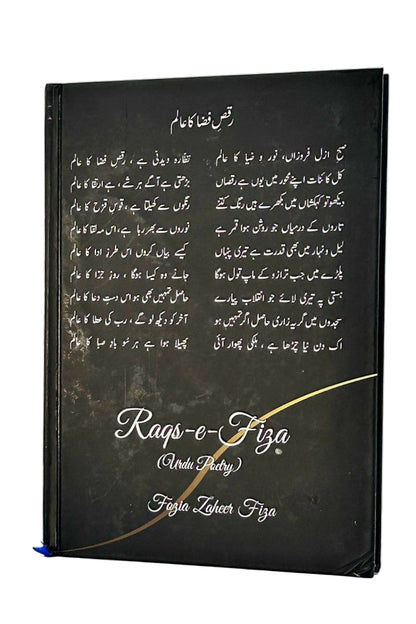 رقصِ فضا کا عالم
صبح ازل فروزاں، نور و ضیا کا عالم نظارہ دیدنی ہے ، رقصِ فضا کا عالم
کل کائنات اپنے محور میں یوں ہے رقصاں بڑھتی ہے آگے ہر شے ، ہے ارتقا کا عالم
دیکھو تو کہکشاں میں بکھرے ہیں رنگ کتنے رنگوں سے کھیلتا ہے ، قوسِ قزح کا عالم
تاروں کے درمیاں جو روشن ہوا قمر ہے نوروں سے بھر رہا ہے ، اس مہ لقا کا عالم
لیل و نہار میں بھی قدرت ہے تیری پنہاں کیسے بیاں کروں اس طرزِ ادا کا عالم
پلڑے میں جب ترازو کے ماپ تول ہوگا جانے وہ کیسا ہوگا ، روزِ جزا کا عالم
ہستی پہ تیری لائے جو انقلاب پیارے حاصل تمہیں بھی ہو اس دستِ دعا کا عالم
سجدوں میں گریہ زاری حاصل اگر تمہیں ہو آخر کو دیکھ لو گے ، رب کی عطا کا عالم
اک دن نیا چڑھا ہے ، ہلکی پھوار آئی پھیلا ہوا ہے ہر سُو بادِ صبا کا عالم
Raqs-e-Fiza
(Urdu Poetry)
Fozia Zaheer Fiza